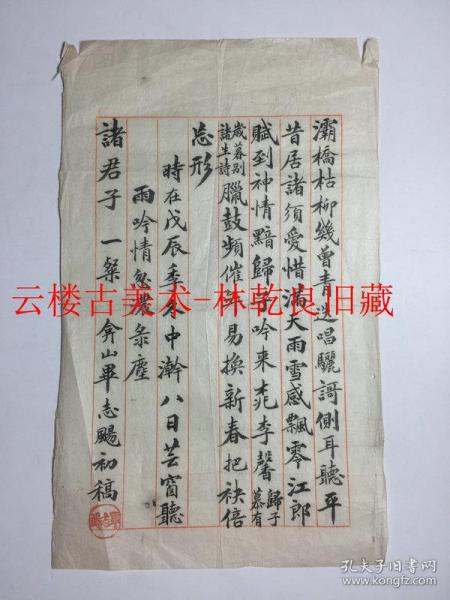 灞橋枯柳幾曾青迭唱驪謌側耳聽平
昔居諸須愛惜滿天雨雪感飄零江郎
賦到神情黯歸子吟來桃李馨歸子慕有
歲暮別諸生詩臘鼓頻催年易換新春把袂倍
忘形
時在戊辰季冬中澣八日芸窗聽
雨吟情忽濃彔塵
諸君子一粲弇山畢志颺初稿
云楼古美术-林乾良旧藏
孔夫子旧书网
www.kongfz.com